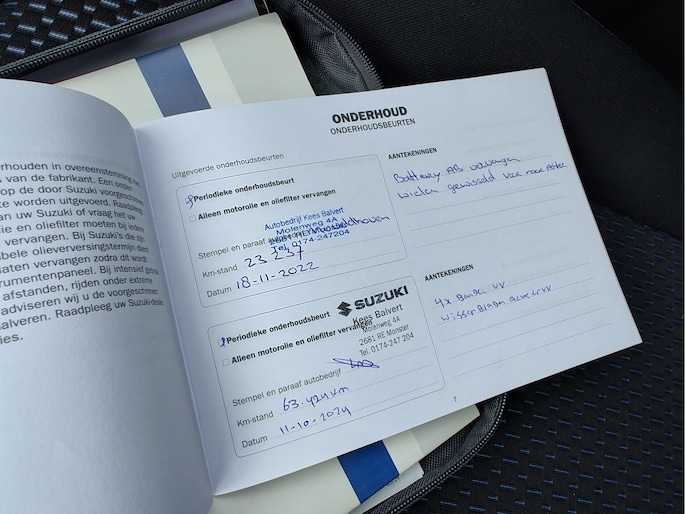 rhouden in overeenstemming met
van de fabrikant. Een onder
op de door Suzuki voorgeschre
te worden uitgevoerd. Raadpleeg
an uw Suzuki of vraag het uw
e en oliefilter moeten bij iedere
vervangen. Bij Suzuki's die zijn
belde olieverversingstermijn dient
laten vervangen zodra dit wordt
strumentenpaneel. Bij intensief gebruik
afstanden, rijden onder extreme
adviseren wij u de voorgeschreven
alveren. Raadpleeg uw Suzuki-dealer
ies.
ONDERHOUD
ONDERHOUDSBEURTEN
Uitgevoerde onderhoudsbeurten
Periodieke onderhoudsbeurt
Alleen motorolie en oliefilter vervangen
Autobedrijf Kees Balvert
Molenweg 4A
2681 RE Monster
Tel. 0174-247204
Stempel en paraaf autobedrijf
Km-stand 23 237
Datum 18-11-2022
AANTEKENINGEN
Battery AB vervangen
wielen gewisseld voor naar Achter
SUZUKI
Periodieke onderhoudsbeurt
Kees Balvert
Alleen motorolie en oliefilter vervangen
Molenweg 4A
2681 RE Monster
Tel. 0174-247 204
Stempel en paraaf autobedrijf
Km-stand 63.424 km
Datum 11-10-2024
AANTEKENINGEN
4x Banden VV
wisserbladen
7